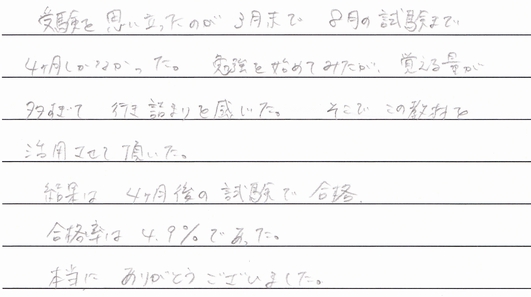 受験を思い立ったのが3月末で 8月の試験まで
4ヶ月しかなかった。 勉強を始めてみたが、覚える量が
多すぎて 行き詰まりを感じた。 そこで この教材を
活用させて頂いた。
結果は 4ヶ月後の試験で 合格。
合格率は 4.9%であった。
本当に ありがとうございました。